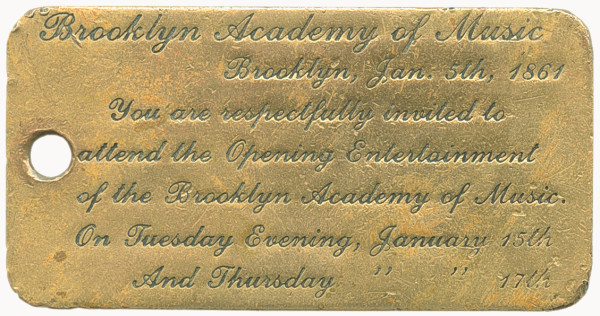 Brooklyn Academy of Music
Brooklyn, Jan. 5th, 1861
You are respectfully invited to
attend the Opening Entertainment
of the Brooklyn Academy of Music.
On Tuesday Evening, January 15th
And Thursday " " 17th